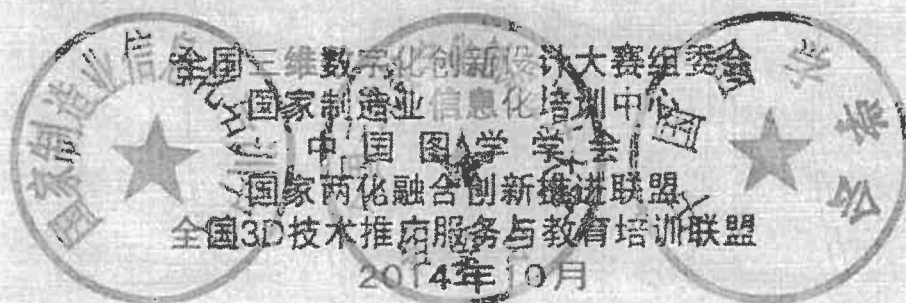 全国三维数字化创新设计大赛组委会
国家制造业信息化培训中心
中国图学学会
国家两化融合创新推进联盟
全国3D技术推广服务与教育培训联盟
2014年10月
国家制造业信息